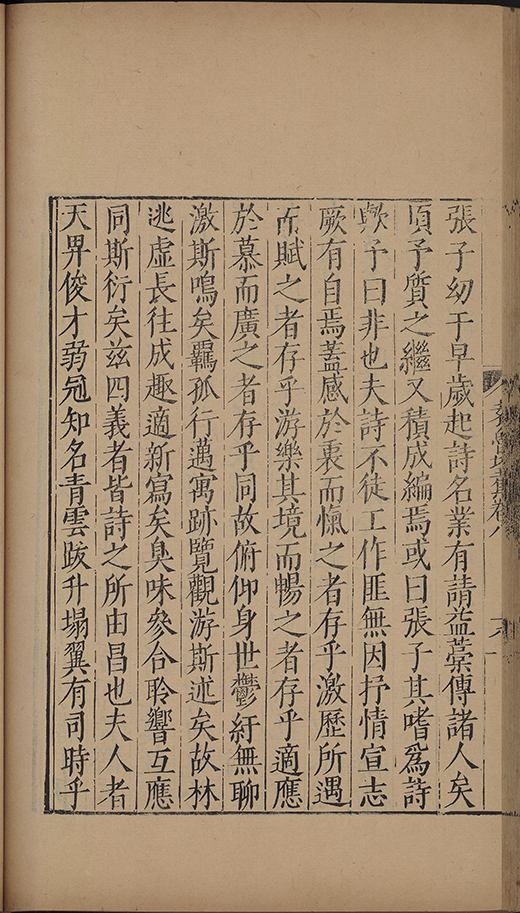 張子幼于早歲起詩名業有請益藁傳諸人矣
頃予質之繼又積成編焉或曰張子其嗜爲詩
歟予曰非也夫詩不徒工作匪無因抒情宣志
厥有自焉蓋感於衷而愾之者存乎激歷所遇
而賦之者存乎游樂其境而暢之者存乎適應
於慕而廣之者存乎同故俯仰身世鬱紆無聊
激斯鳴矣羈孤行邁寓跡覽觀游斯述矣故林
逃虛長往成趣適新寫矣臭味參合聆響互應
同斯衍矣兹四義者皆詩之所由昌也夫人者
天畀俊才弱冠知名青雲跋升塌翼有司時乎